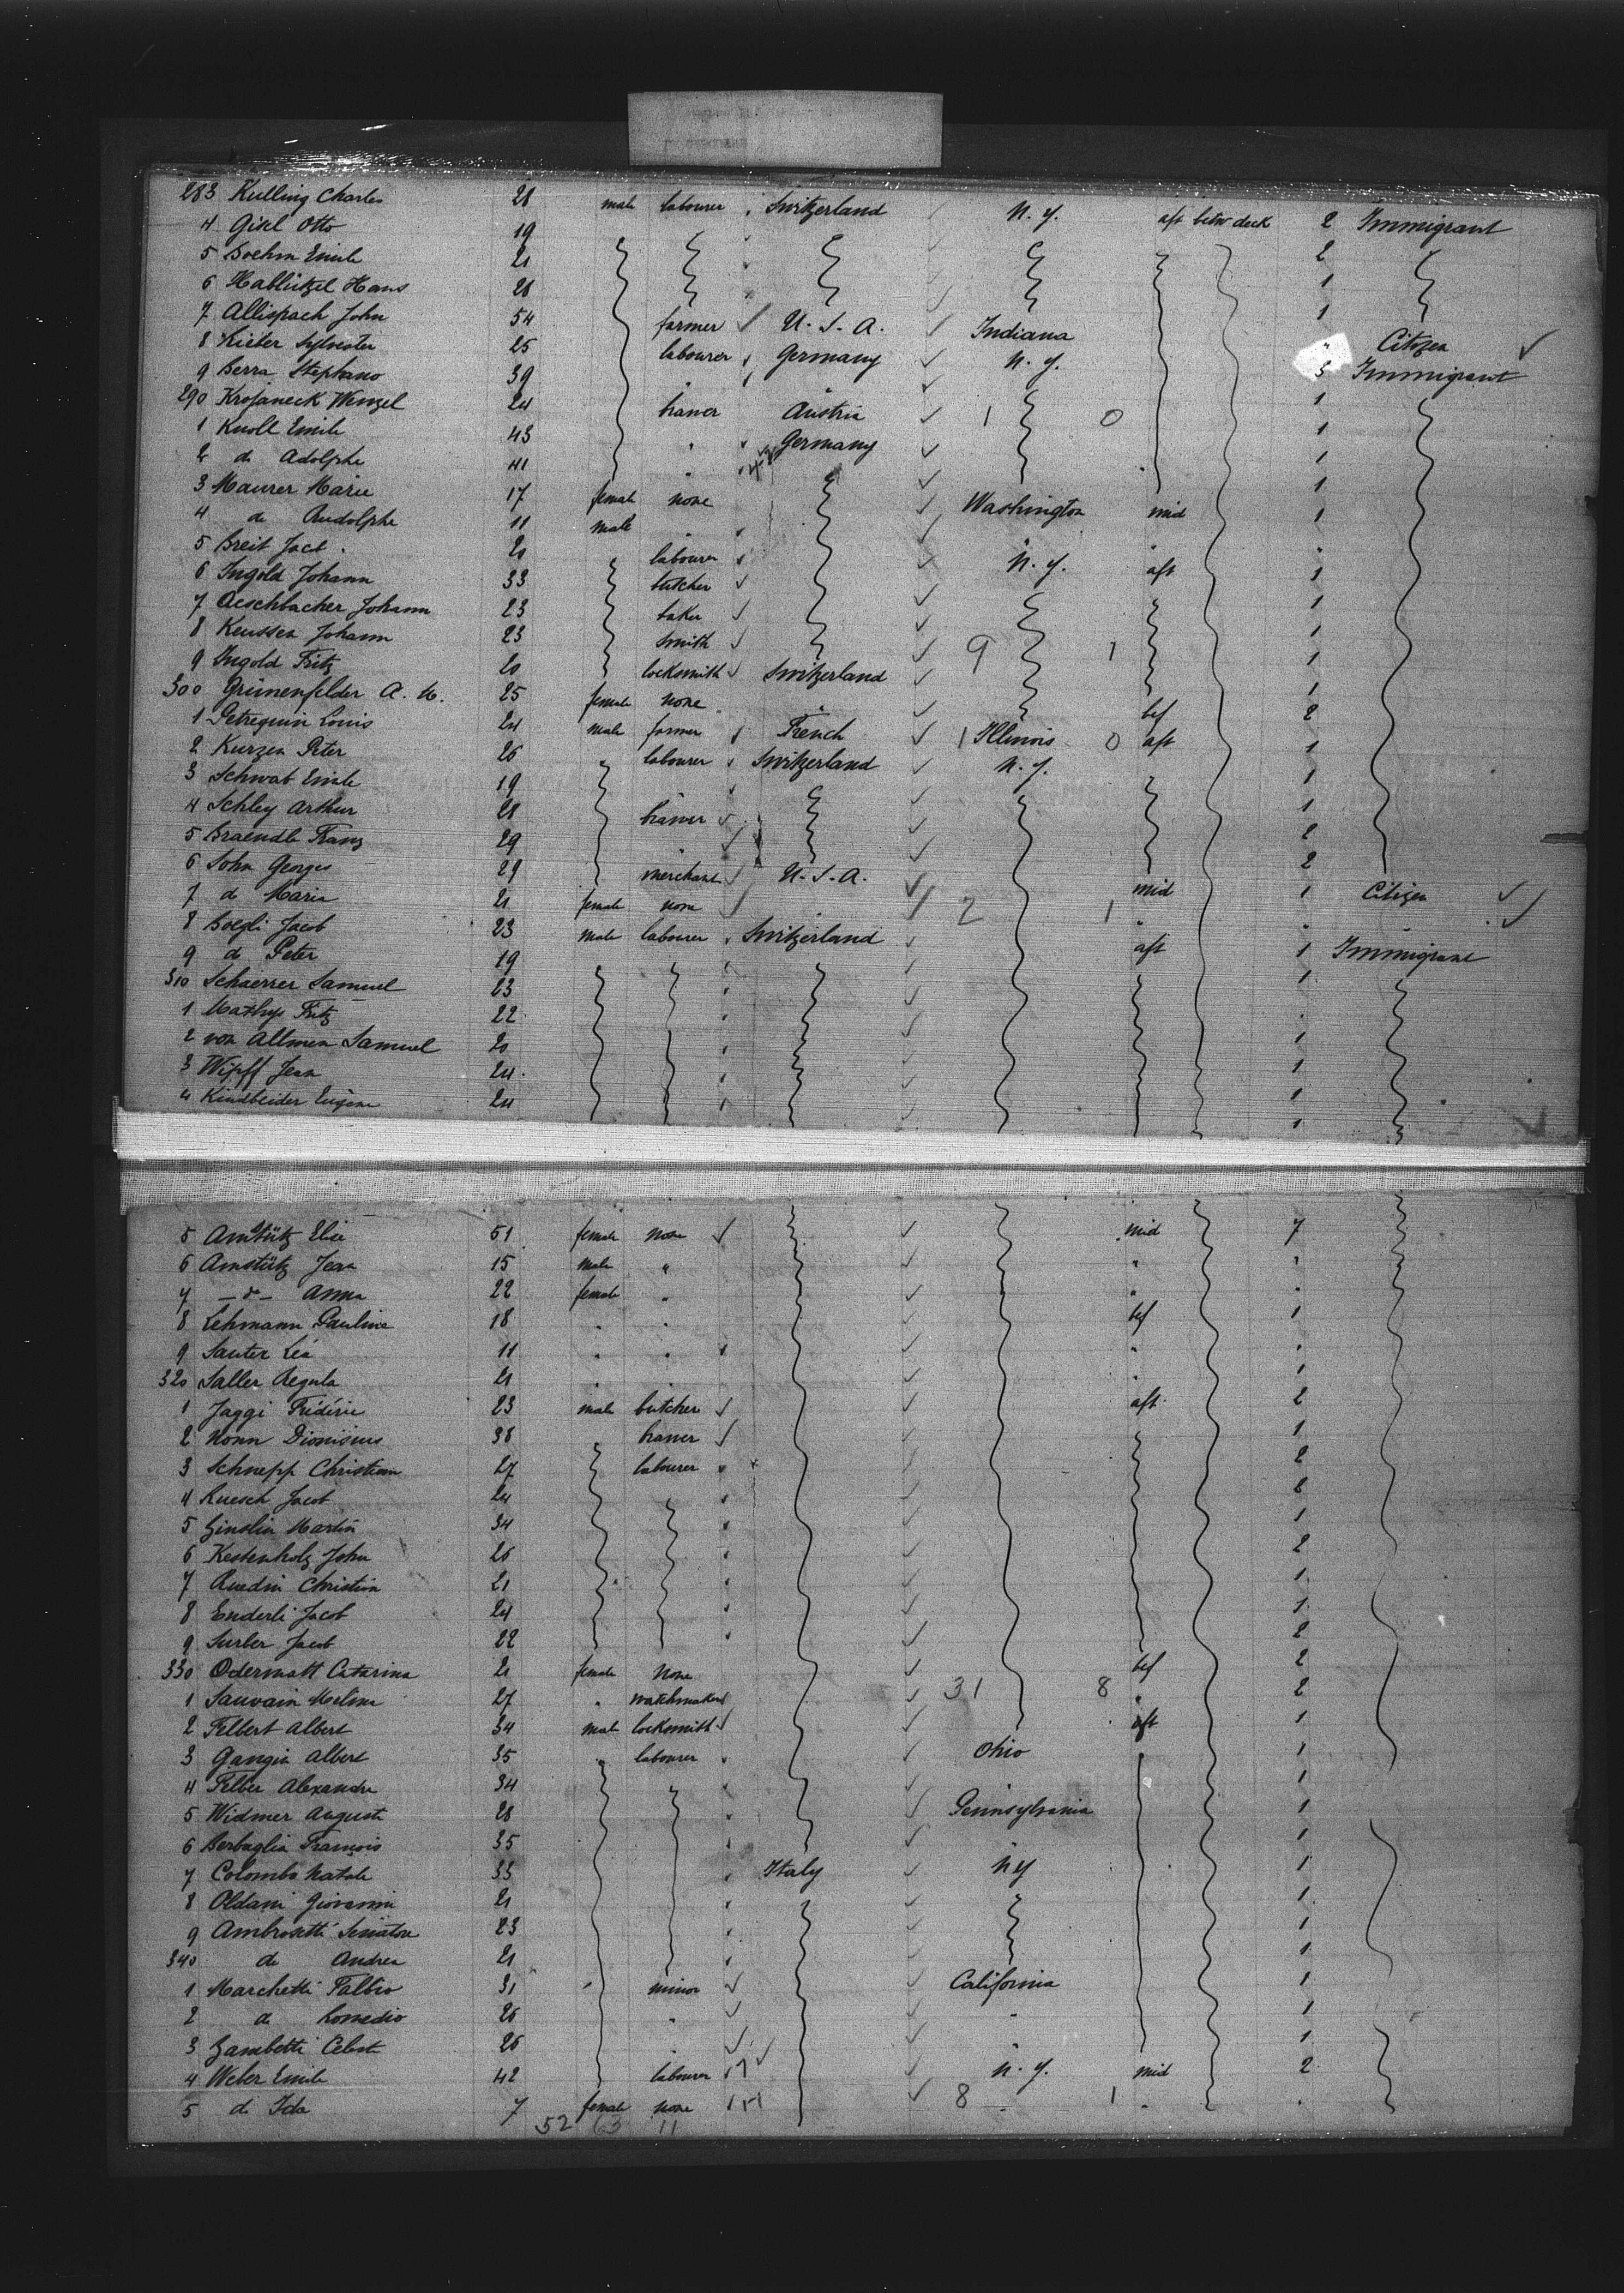 283 Kulling Charles 28 male labourer Switzerland N. Y. aft betw deck 2 Immigrant
4 Gisel Otto 19 2
5 Boehm Emile 21 1
6 Hablützel Hans 28 1
7 Allispach John 54 farmer U. S. A. Indiana " Citizen
8 Kieber Sylvester 25 labourer Germany N. Y. 3 Immigrant
9 Berra Stephano 39 " " 1
290 Krofaneck Wenzel 24 Austria 1 0 1
1 Knoll Emile 43 " Germany 1
2 do Adolphe 41 " 1
3 Maurer Marie 17 female none Washington mid 1
4 do Rudolphe 11 male " " "
5 Breit Jacb. 20 labourer N. Y. aft 1
6 Ingold Johann 33 butcher 1
7 Aeschbacher Johann 23 baker 1
8 Keussen Johann 23 smith 9 1 1
9 Ingold Fritz 20 locksmith Switzerland 1
300 Grünenfelder A. M. 25 female none " bef 2
1 Petrequin Louis 24 male farmer French 1 Illinois 0 aft 1
2 Kurzen Peter 26 " labourer Switzerland N. Y. 1
3 Schwab Emile 19 1
4 Schley Arthur 28 2
5 Braendle Franz 29 2
6 Sohn Georges 29 merchant U. S. A. mid 1 Citizen
7 do Maria 21 female none " 2 1 " "
8 Boegli Jacob 23 male labourer Switzerland aft 1 Immigrant
9 do Peter 19 1
310 Schaerrer Samuel 23
1 Mathys Fritz 22 1
2 von Allmen Samuel 20 1
3 Wipff Jean 24 1
4 Kindbeider Eugène 24 1
5 Amstütz Elise 51 female none mid 7
6 Amstütz Jean 15 male " " "
7 — do — Anna 22 female " " "
8 Lehmann Pauline 18 " " bef 1
9 Sauter Léa 11 " " " "
320 Saller Regula 21 " " " 1
1 Jaggi Frédéric 23 male butcher aft 2
2 Nonn Dionisius 38 " 1
3 Schnepp Christian 27 labourer 2
4 Ruesch Jacob 24 2
5 Zinslin Martin 34 1
6 Kestenholz John 26 2
7 Ruedin Christian 21 1
8 Enderli Jacob 24 1
9 Surber Jacob 22 2
330 Odermatt Catarina 21 female none bef 2
1 Sauvain Melina 27 " watchmaker 31 8 " 2
2 Felbert Albert 34 male locksmith aft 1
3 Gangin Albert 35 " labourer Ohio 1
4 Felber Alexandre 34 1
5 Widmer Auguste 28 Pennsylvania 1
6 Berbaglia François 35 1
7 Colombo Natale 33 Italy N Y 1
8 Oldani Giovanni 21 1
9 Ambrosetti Senatore 23 1
340 do Andrea 21 1
1 Marchetti Fabbio 31 " minor California 1
2 do Romedio 26 " " 1
3 Zambetti Celeste 26 " " 1
4 Weber Emile 42 labourer N. Y. mid 2
5 do Ida 7 female none 8 1 " "
52 63 11